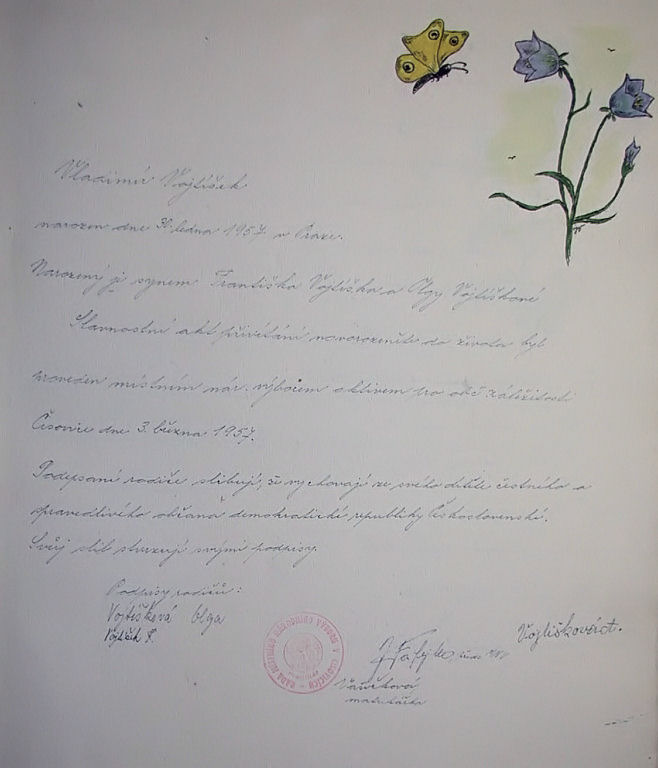 Vladimír Vojtíšek
narozen dne 30. ledna 1957 v Praze.
Narozený je synem Františka Vojtíška a Olgy Vojtíškové
Slavnostní akt přivítání novorozeněte do života byl
proveden místním nár. výborem aktivem pro obč. záležitosti
Čisovice dne 3. března 1957.
Podepsaní rodiče slibují, že vychovají ze svého dítěte čestného a
spravedlivého občana demokratické republiky Československé.
Svůj slib stvrzují svými podpisy.
Podpisy rodičů:
Vojtíšková Olga
Vojtíšek F.
RADA MÍSTNÍHO NÁRODNÍHO VÝBORU V ČISOVICÍCH
Vojtíšková
matrikářka